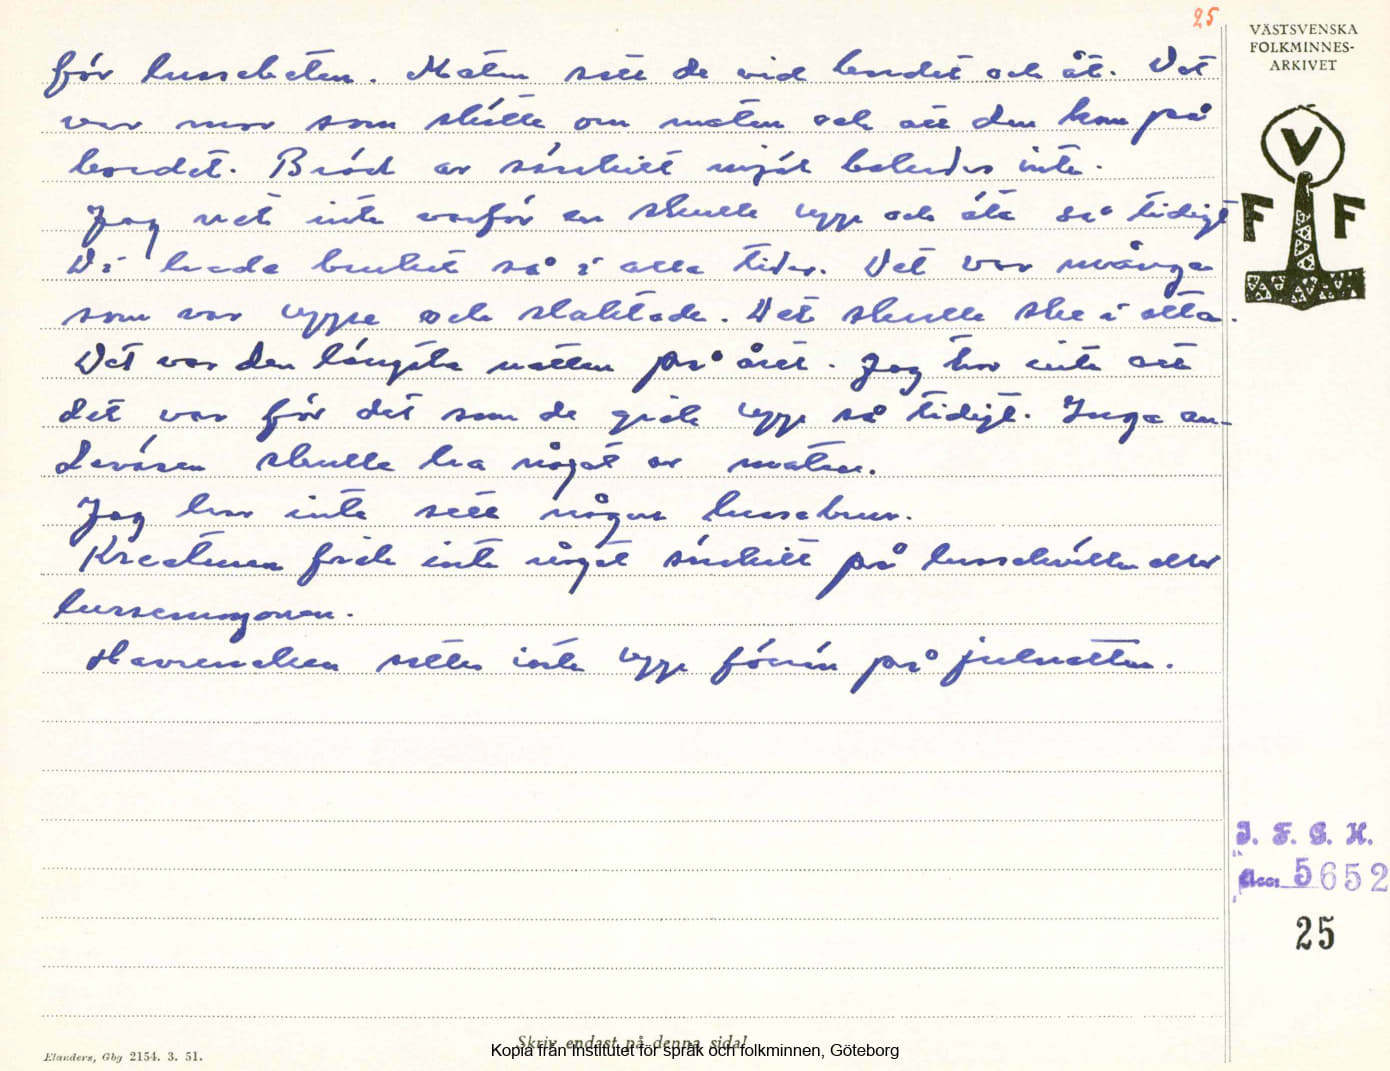 25
VÄSTSVENSKA
FOLKMINNES-
ARKIVET
V
F F
för lussebeten. Maten sått de vid bordet och åt. Det
var mor som skötte om maten och att den kom på
bordet. Bröd av särskilt mjöl bakades inte.
Jag vet inte varför en skulle upp och äta så tidigt
Di hade brukat så i alla tider. Det var många
som var uppe och slaktade. Det skulle ske i otta.
Det var den längsta natten på året. Jag tror inte att
det var för det som de gick upp så tidigt. Inga an-
draväsen skulle ha något av maten.
Jag har inte sett någon lussebrur.
Kreaturen fick inte något särskilt på lussekvällen eller
lussemorgonen.
Havreneken sattes inte upp förrän på julnatten.
I. F. G. H.
Acc. 5652
25
Skriv endast på denna sida!
Kopia från Institutet för språk och folkminnen, Göteborg
Elanders, Gbg 2154. 3. 51.